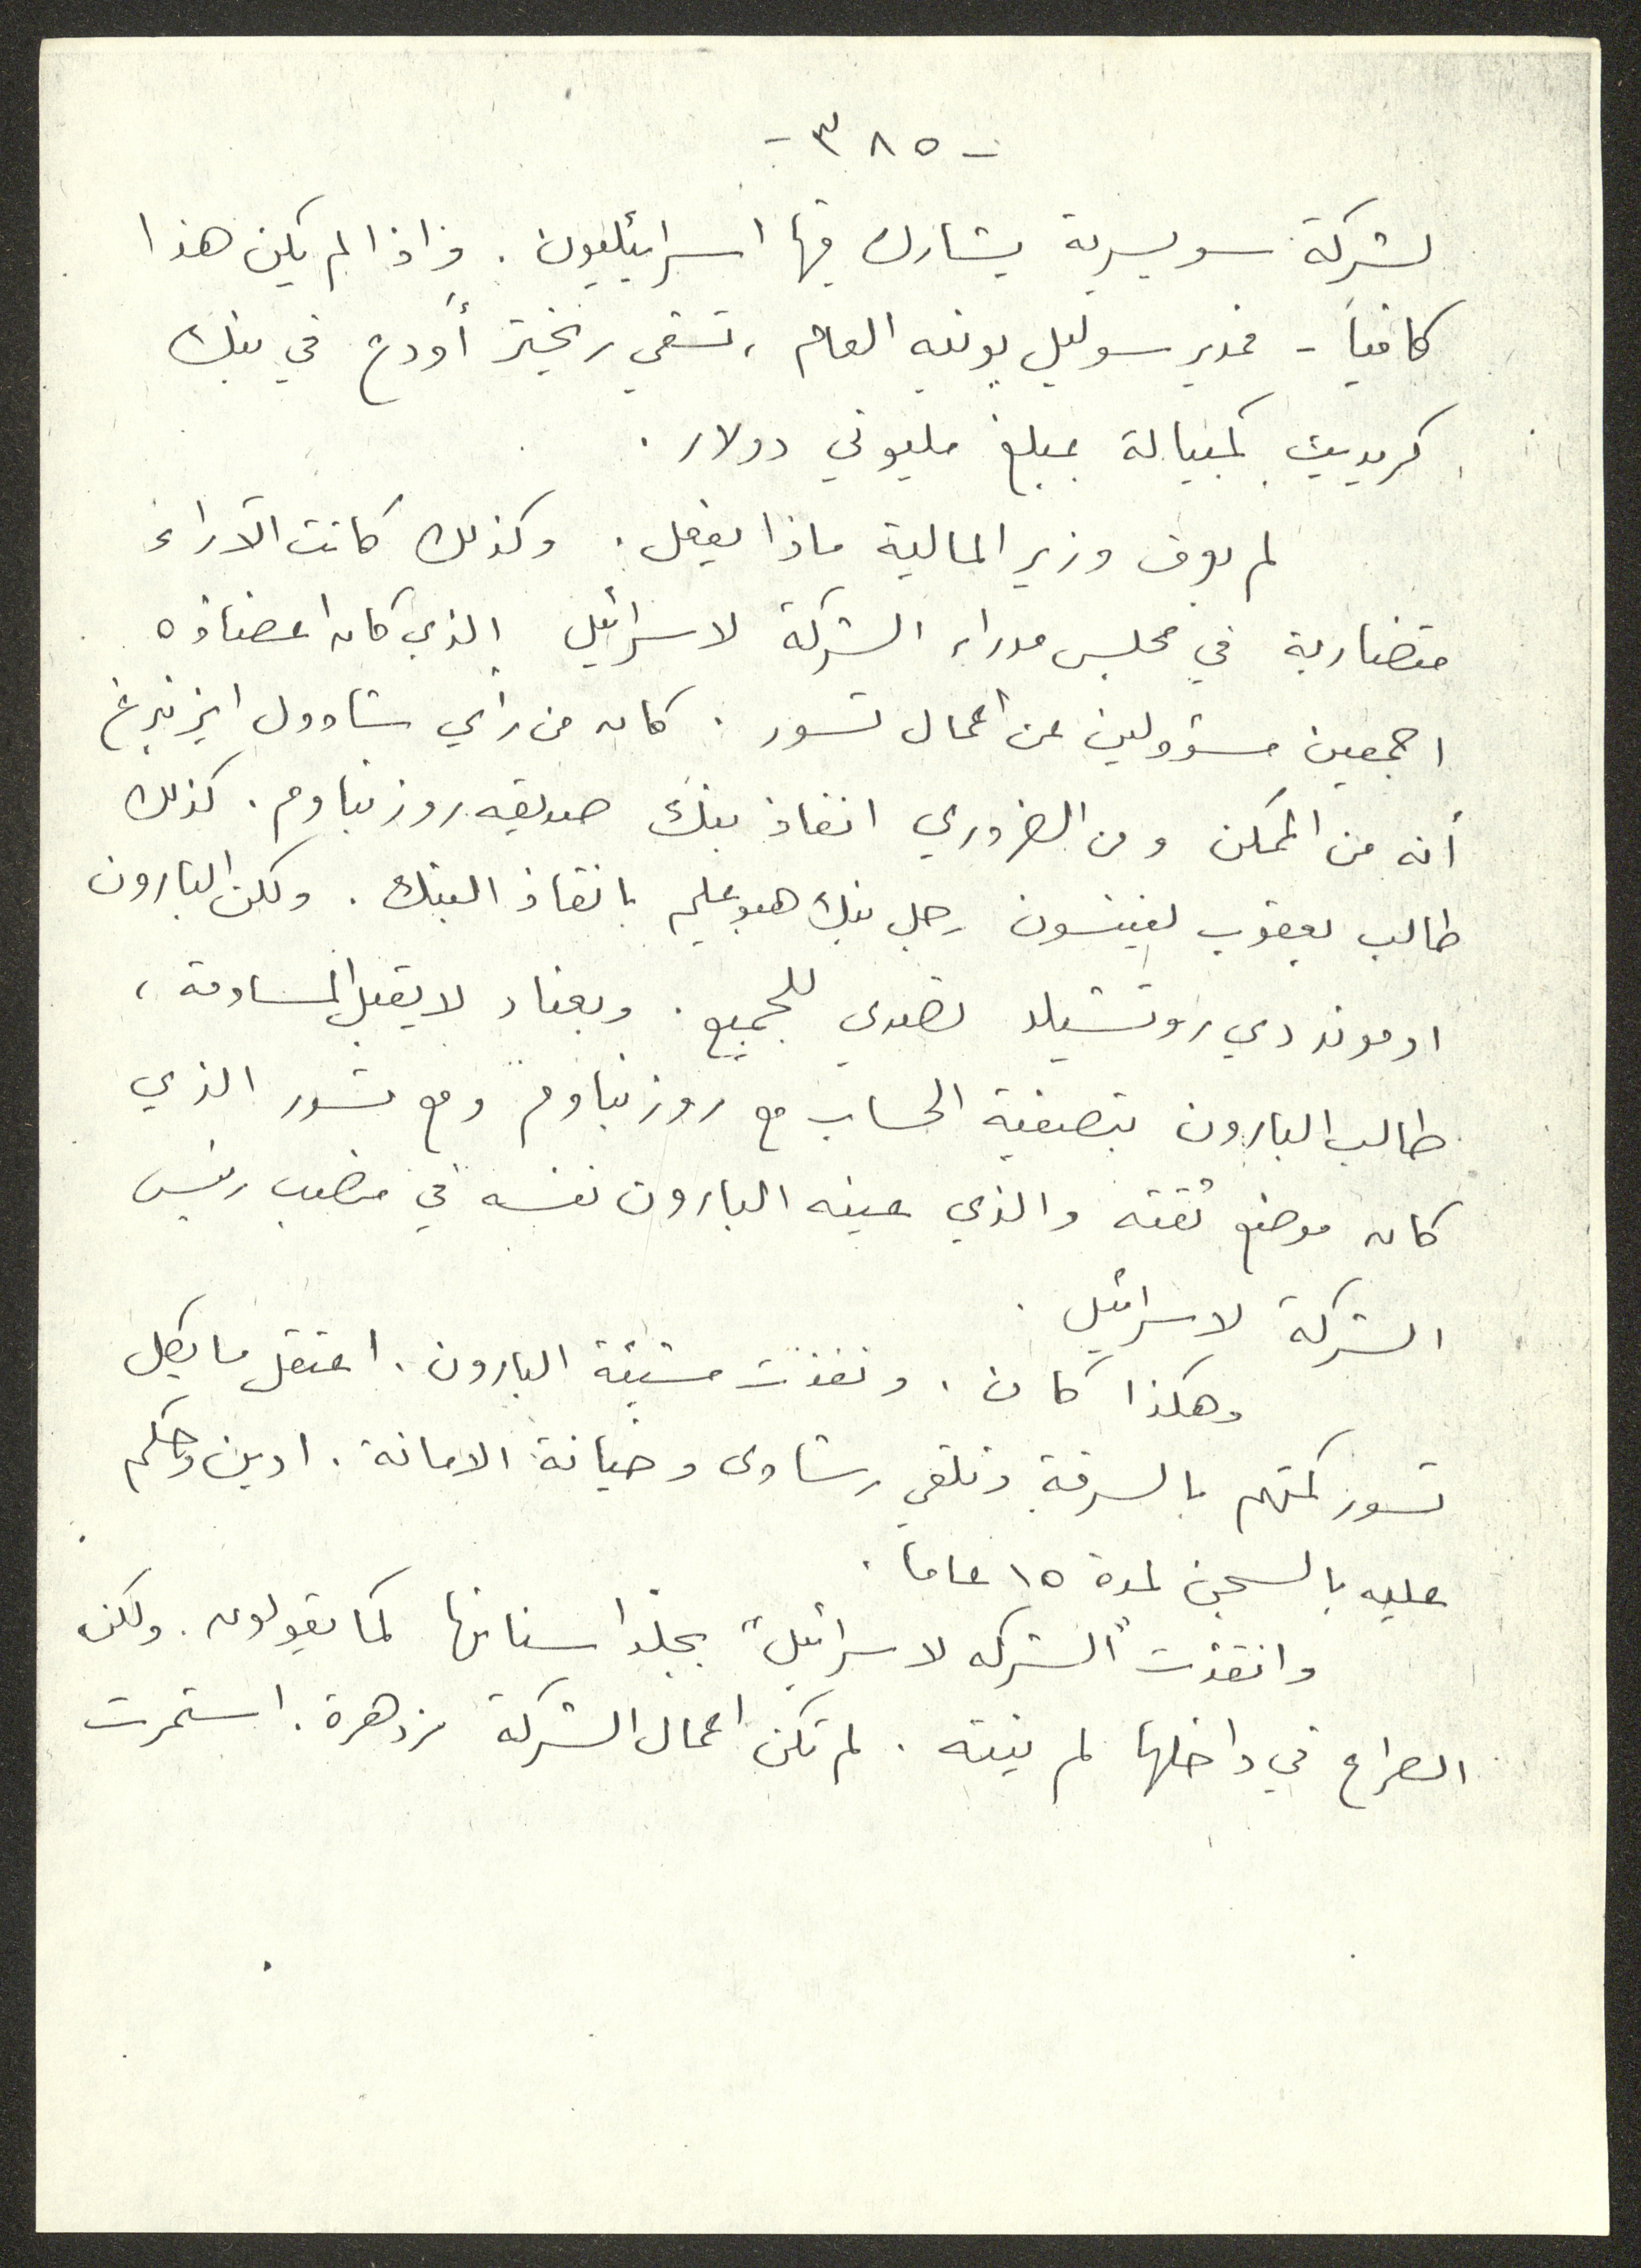 - ٣٨٥ -
لشركة سويسرية يشارك فيها اسرائيليون. واذا لم يكن هذا
كافياً - فمدير سوليل بونيه العام، تسفي ريختر أودع في بنك
كريديت كمبيالة بمبلغ مليوني دولار.
لم يعرف وزير المالية ماذا يفعل. وكذلك كانت الآراء
متضاربة في مجلس مدراء الشركة لاسرائيل الذي كان اعضاؤه
اجمعين مسؤولين عن اعمال تسور. كان من رأي شاوول ايزنبرغ
أنه من الممكن ومن الضروري انقاذ بنك صديقه روزنباوم. كذلك
طالب يعقوب لفينسون رجل بنك هبوعليم بانقاذ البنك. ولكن البارون
ادموند دي روتشيلد تصدى للجميع. وبعناد لا يقبل المساومة،
طالب البارون بتصفية الحساب مع روزنباوم ومع تسور الذي
كان موضع ثقته والذي عينه البارون نفسه في منصب رئيس
الشركة لاسرائيل.
وهكذا كان. ونفذت مشيئة البارون. اعتقل مايكل
تسور كمتهم بالسرقة وتلقي رشاوى وخيانة الامانة. ادين وحكم
عليه بالسجن لمدة ١٥ عاما.
وانقذت "الشركه لاسرائيل" بجلد اسنانها كما يقولون. ولكن
الصراع في داخلها لم ينته. لم تكن اعمال الشركة مزدهرة. استمرت